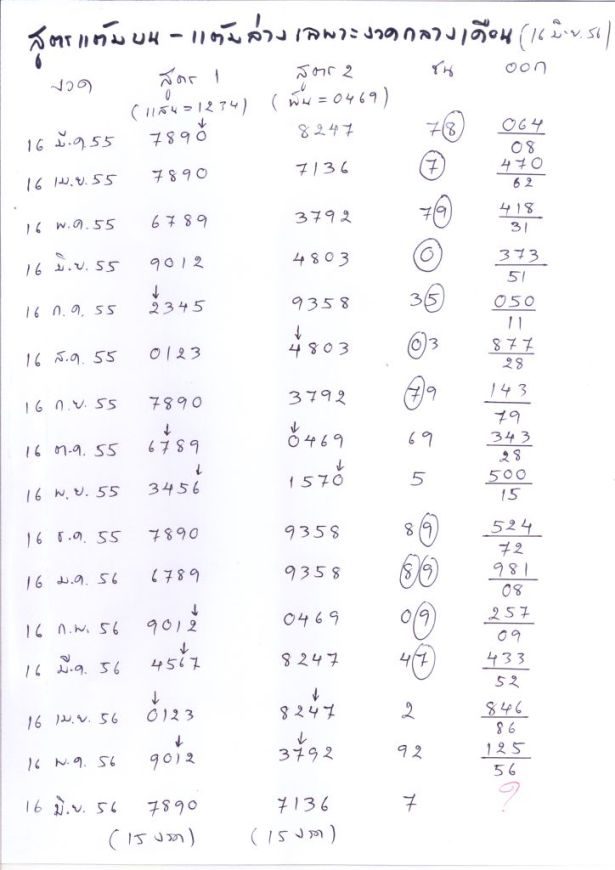 สูตรแต้มบน - แต้มล่าง เฉพาะงวดกลางเดือน (16 มิ.ย. 56)
งวด สูตร 1 สูตร 2 ชน ออก
(แสน = 1234) (พัน = 0469)
16 มี.ค. 55 7890 8247 78 064
08
16 เม.ย. 55 7890 7136 7 470
62
16 พ.ค. 55 6789 3792 79 418
31
16 มิ.ย. 55 9012 4803 0 373
51
16 ก.ค. 55 2345 9358 35 050
11
16 ส.ค. 55 0123 4803 03 877
28
16 ก.ย. 55 7890 3792 79 143
79
16 ต.ค. 55 6789 0469 69 343
28
16 พ.ย. 55 3456 1570 5 500
15
16 ธ.ค. 55 7890 9358 89 524
72
16 ม.ค. 56 6789 9358 89 981
08
16 ก.พ. 56 9012 0469 09 257
09
16 มี.ค. 56 4567 8247 47 433
52
16 เม.ย. 56 0123 8247 2 846
86
16 พ.ค. 56 9012 3792 92 125
56
16 มิ.ย. 56 7890 7136 7 ?
(15 งวด) (15 งวด)